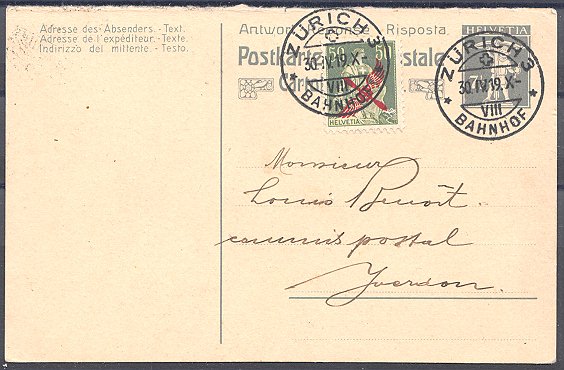 Adresse des Absenders. - Text.
Adresse de l'expéditeur. - Texte.
Indirizzo del mittente. - Testo.
Antwort Réponse - Risposta.
HELVETIA
Postkar stale
Car
50
HELVETIA
ZÜRICH 3
30.IV.19.X-
VIII
BAHNHOF
ZÜRICH 3
30.IV.19.X-
VIII
BAHNHOF
7½
Monsieur
Louis Benoît.
commis postal
Yverdon.